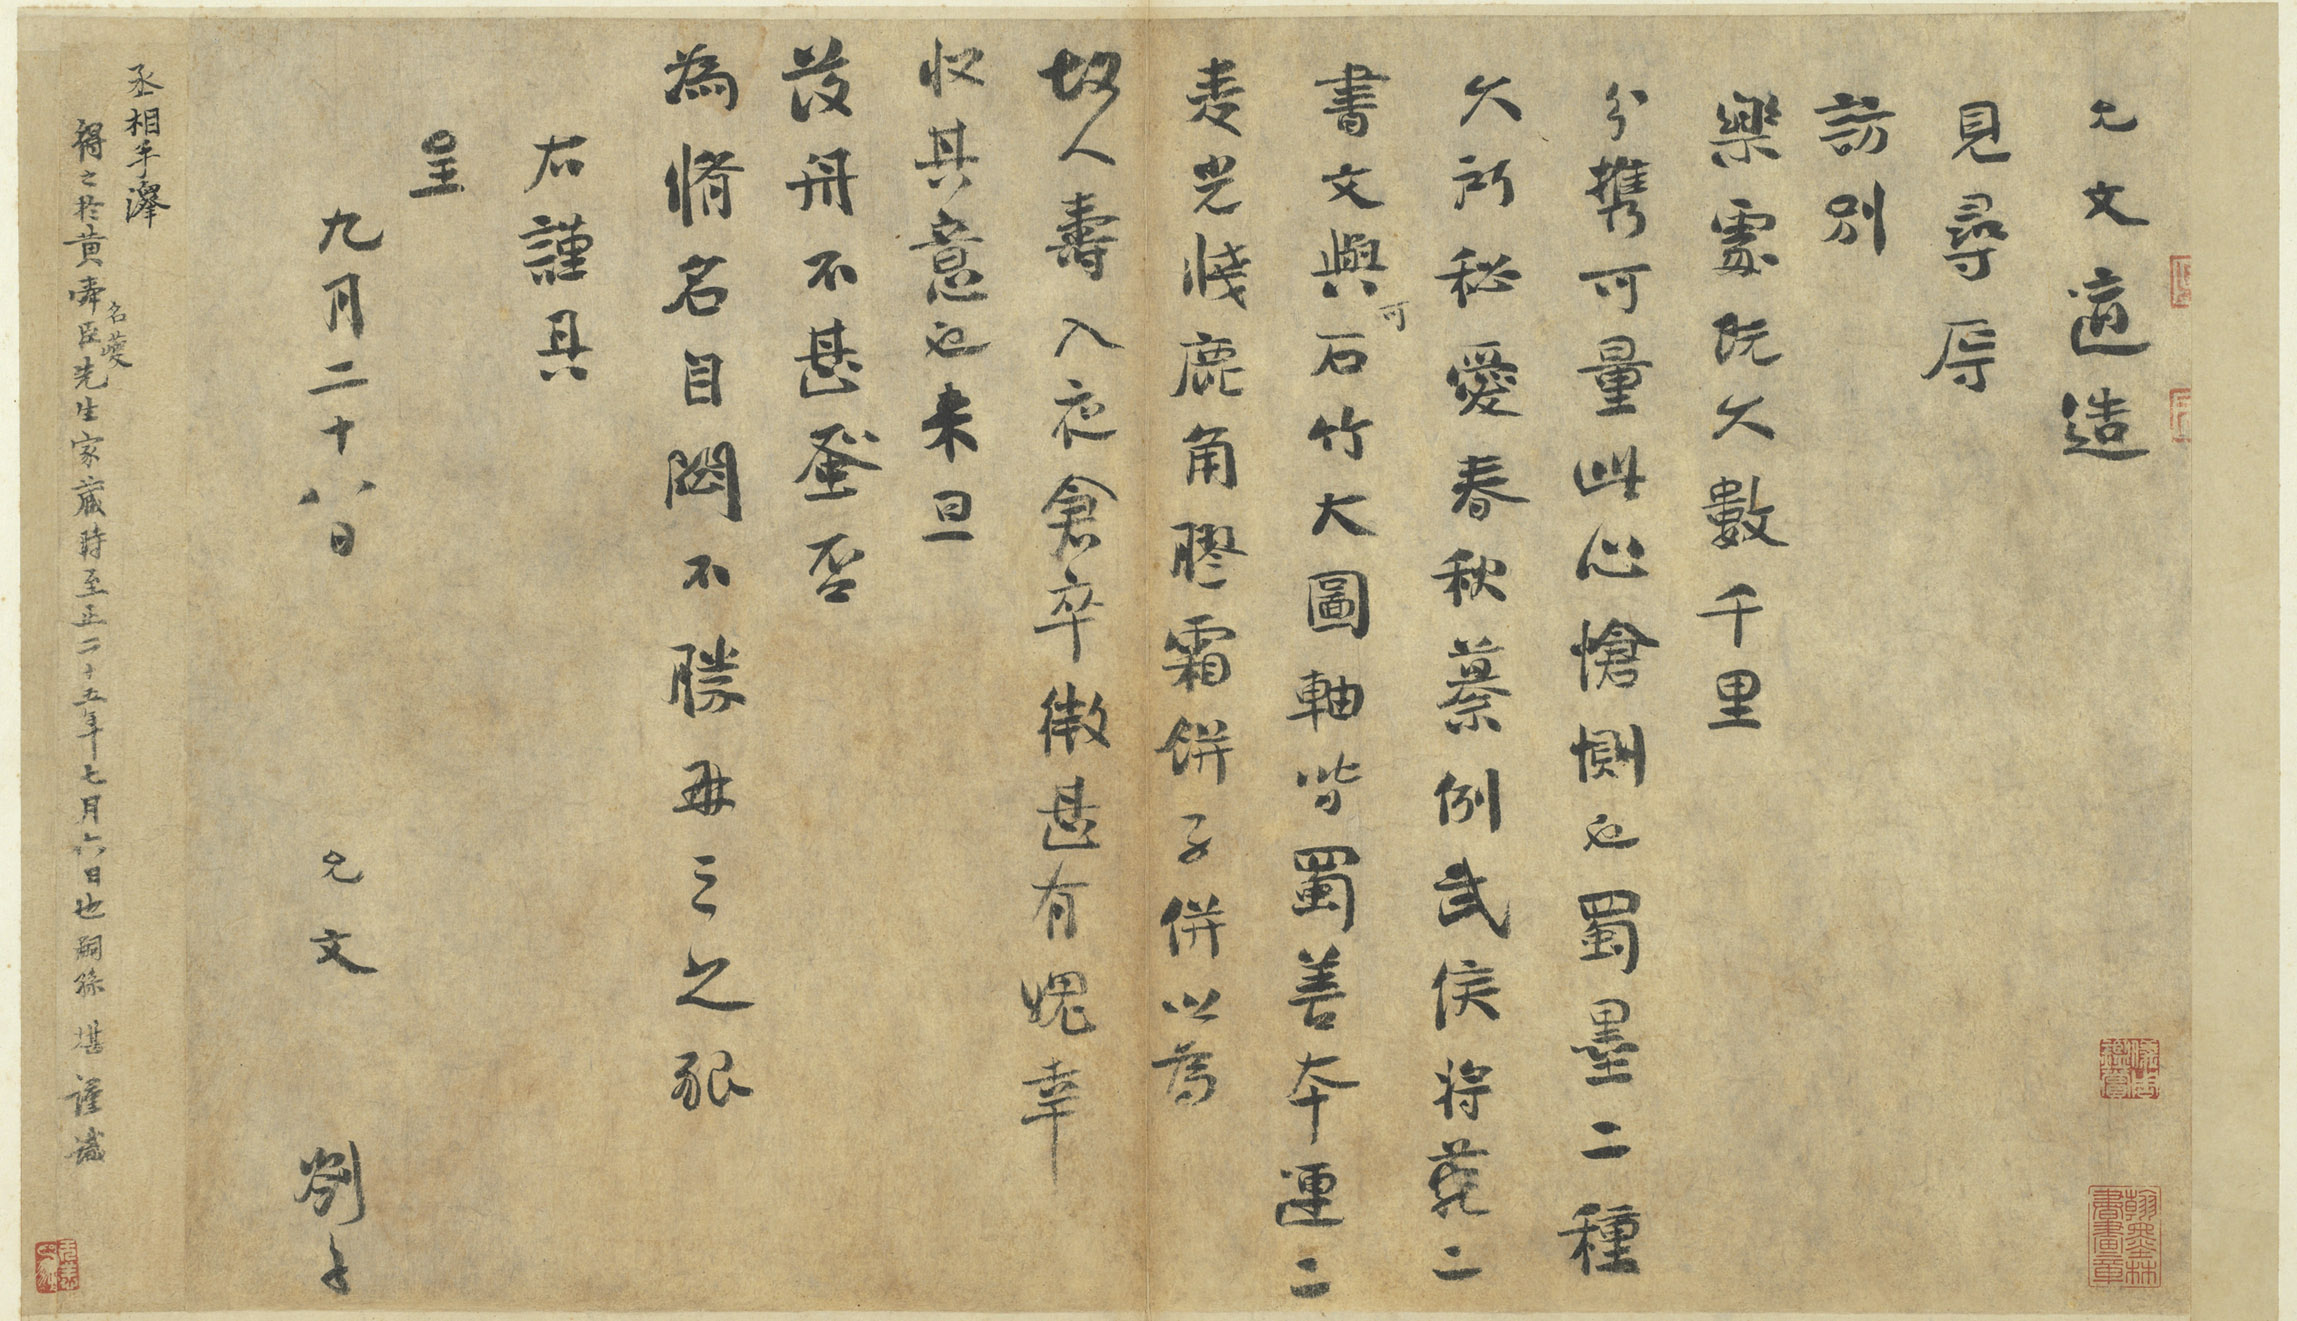 允文適造
見尋辱
訪別
樂處既久數千里
分攜可量此心愴惻也蜀墨二種
久所秘愛春秋纂例武侯將苑二
書文與可石竹大圖軸皆蜀善本運二
麦光牋鹿角膠霜餅子併以為
故人壽入夜倉卒微甚有愧幸
收其意也來旦
發舟不甚蚤否
為脩名目閎不勝再三之懇
右謹具
呈
九月二十八日 允文 劄子
丞相手澤
得之於黃舜臣名夔先生家藏時至正二十五年七月六日也嗣孫堪謹識
翰墨林書畫章